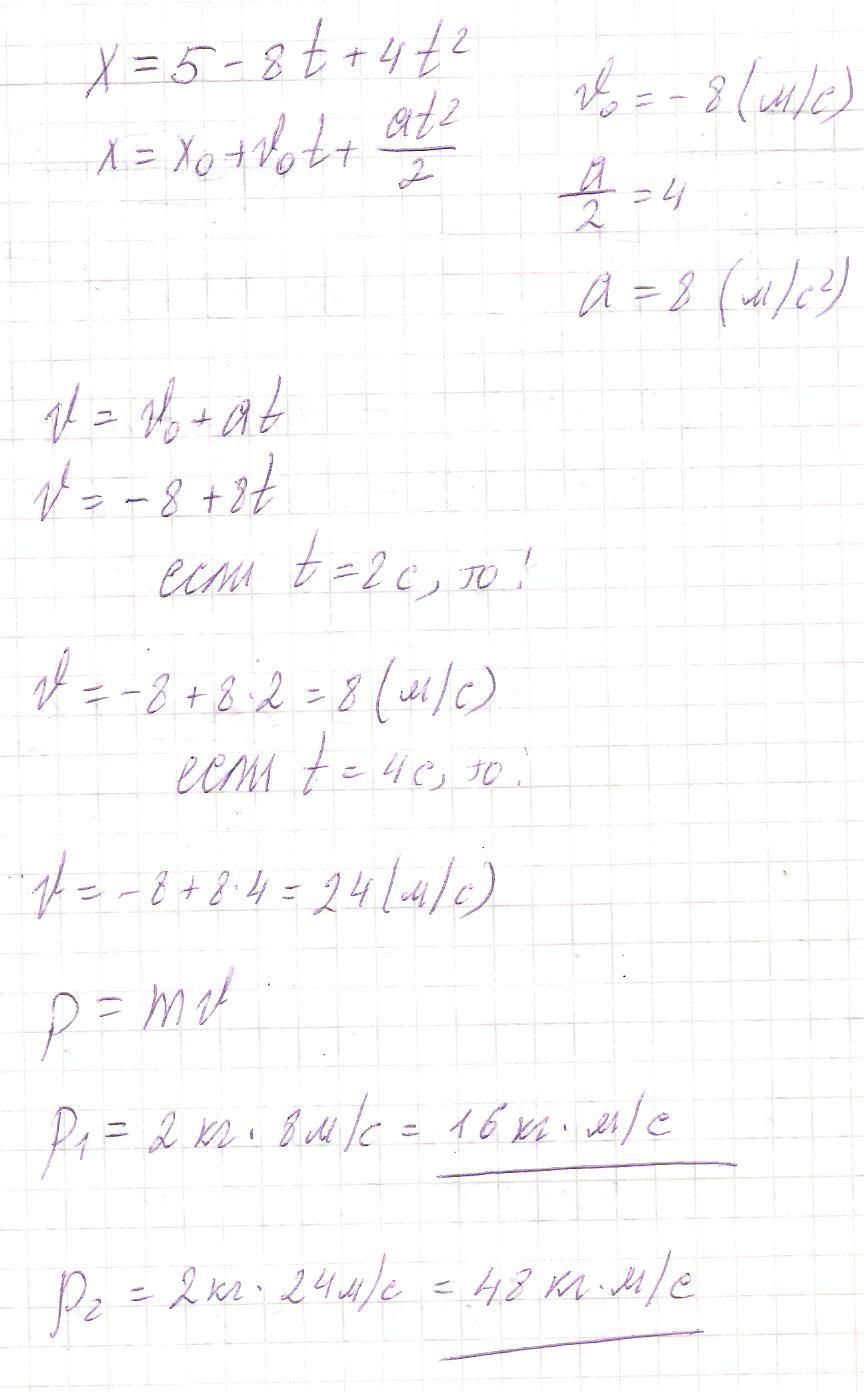 x = 5 - 8t + 4t²
x = x₀ + v₀t + at²/2
v₀ = -8 (м/с)
a/2 = 4
a = 8 (м/с²)
v = v₀ + at
v = -8 + 8t
если t = 2с, то:
v = -8 + 8·2 = 8 (м/с)
если t = 4с, то:
v = -8 + 8·4 = 24 (м/с)
p = mv
p₁ = 2 кг · 8м/с = 16 кг · м/с
p₂ = 2кг · 24м/с = 48 кг·м/с